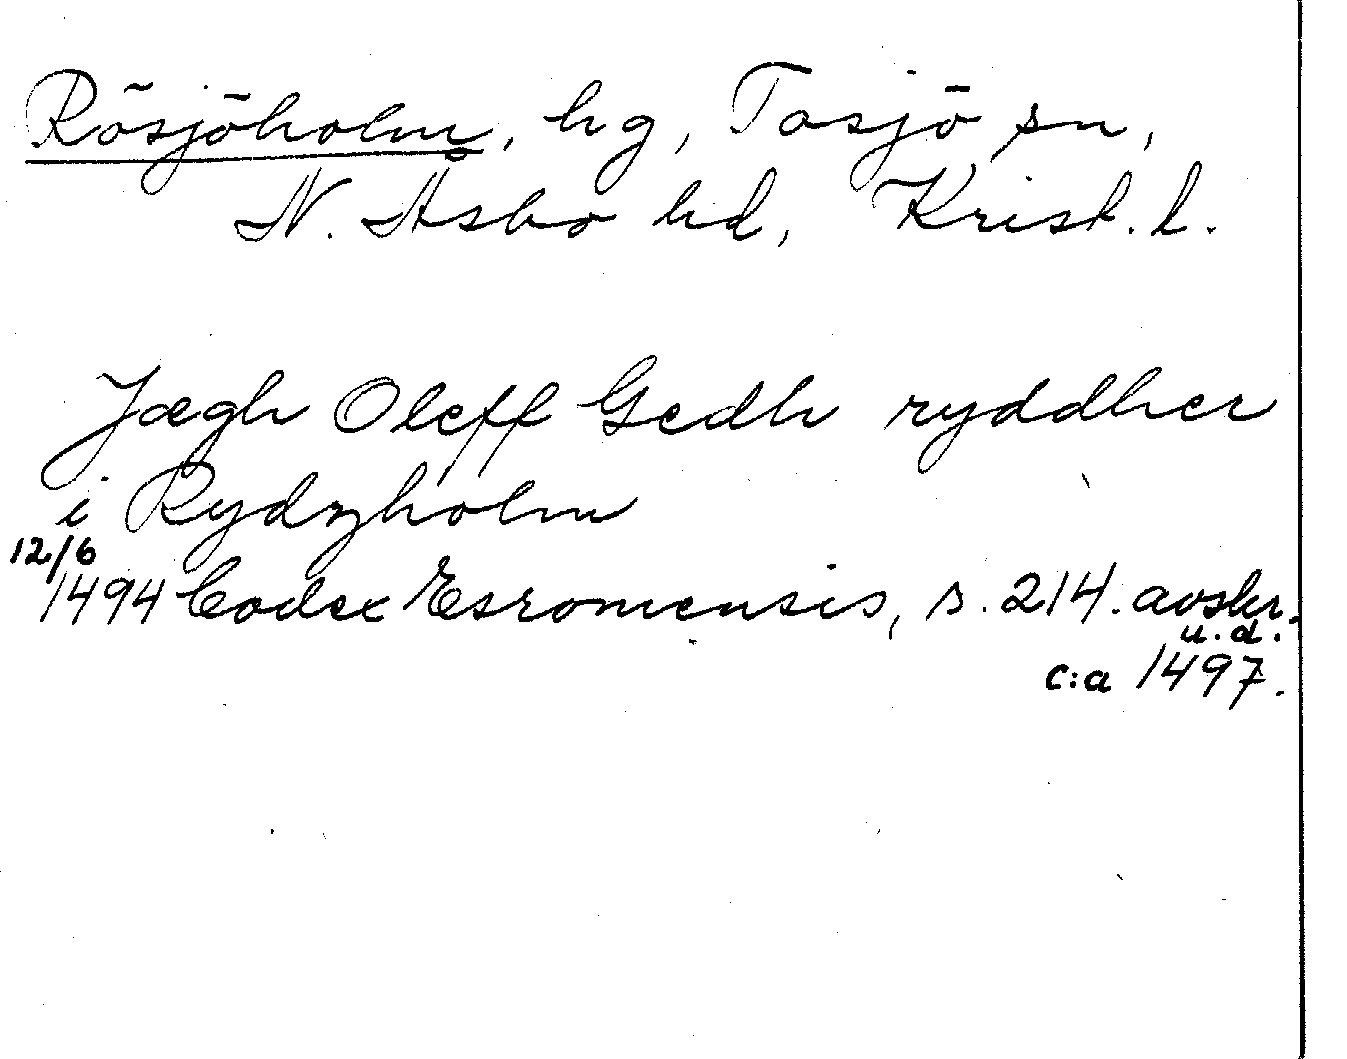 Rösjöholm, hg, Tosjö sn,
N. Åsbo hd, Krist. l.
Jægh Oleff Gedh ryddher
i Rydzholm
12/6
1494 Codex Esromensis, s. 214. avskr.
u. d.
c:a 1497.